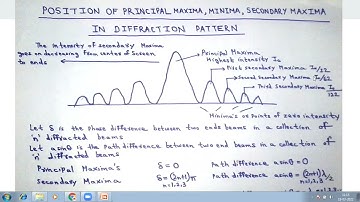 POSITION OF PRINCIPAL MAXIMA, MINIMA, SECONDARY MAXIMA
IN DIFFRACTION PATTERN
The intensity of secondary Maxima
goes on decreasing from center of Screen
to ends
Principal Maxima
Highest intensity I₀
First secondary Maxima I₀/22
Second secondary Maxima I₀/62
Third secondary Maxima I₀
122
Minima's or Points of zero intensity
Let δ is the phase difference between two ends beams in a collection of
'n' diffracted beams
Let a sinθ is the Path difference between two end beams in a collection of
'n' diffracted beams
Principal Maxima's δ = 0 Path difference a sinθ = 0
Secondary Maxima δ = (2n+1)π Path difference a sinθ = (2n+1)λ/2
n=1,2,3 n=1,2,3